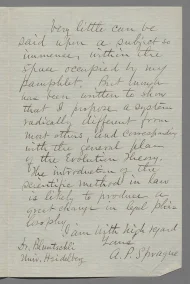 Very little can be
said upon a subject so
immense, within the
space occupied by my
pamphlet. But enough
has been written to show
that I propose a system
radically different from
most others, and corresponding
with the general plan
of the Evolution theory.
The introduction of the
scientific method in law
is likely to produce a
great change in legal philo-
sophy.
I am with high regard
Yours
A. P. Sprague
Dr. Bluntschli
Univ. Heidelberg